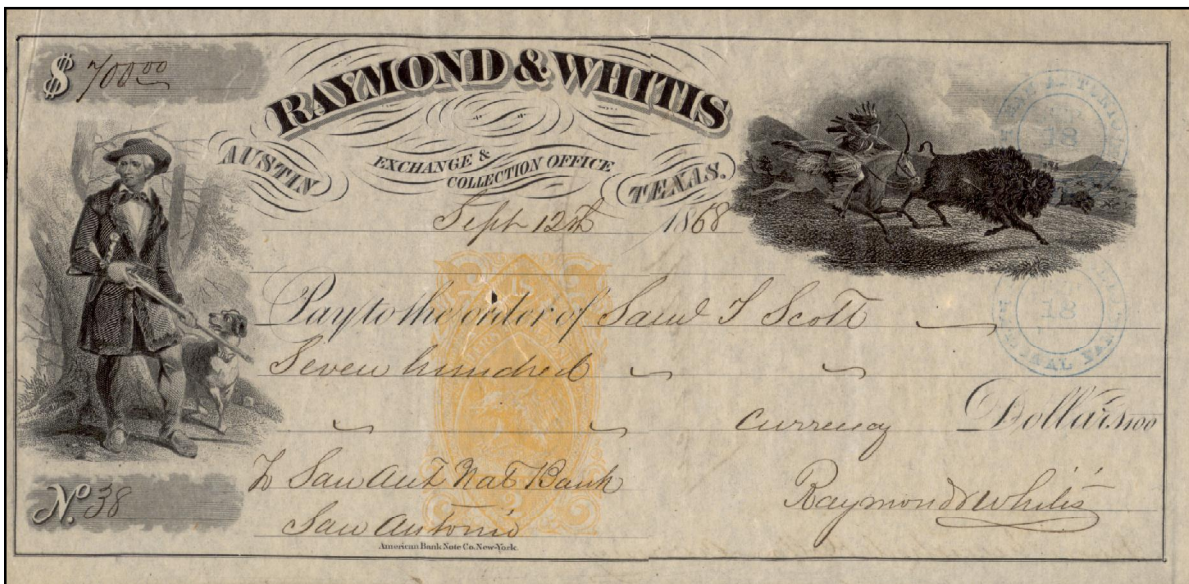 $ 700 00
RAYMOND & WHITIS
AUSTIN
EXCHANGE &
COLLECTION OFFICE
TEXAS.
Sept 12th 1868
Pay to the order of Saml T Scott
Seven hundred
currency Dollars 100
To San Ant Nat Bank
San Antonio
Raymond & Whitis
No. 38
American Bank Note Co. New-York.
18
18